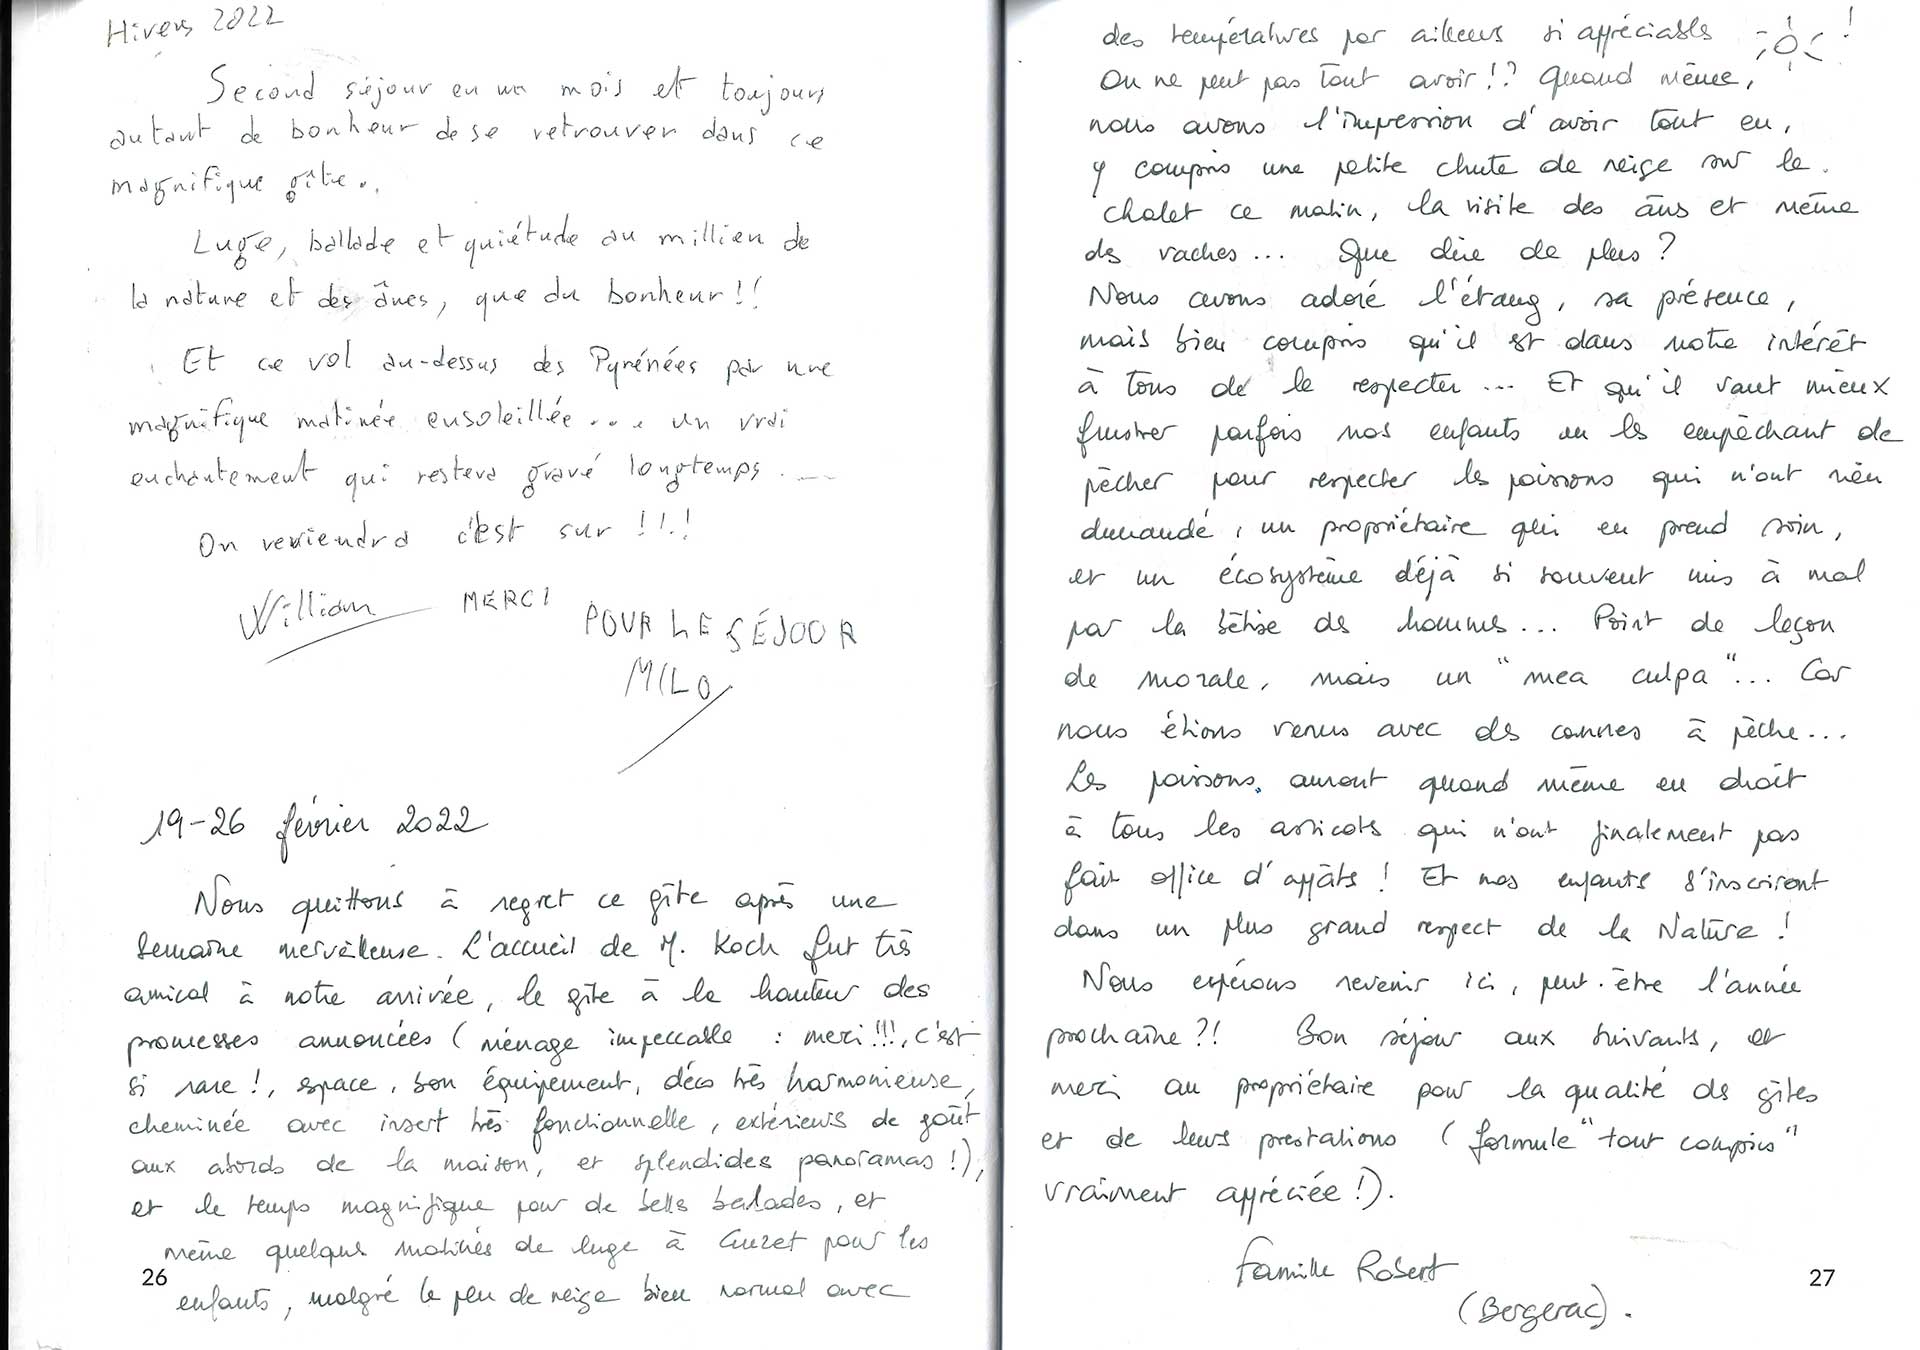 Hivers 2022
Second séjour en un mois et toujours
autant de bonheur de se retrouver dans ce
magnifique gîte..
Luge, ballade et quiétude au millien de
la nature et des ânes, que du bonheur!!
Et ce vol au-dessus des Pyrénées par une
magnifique matinée ensoleillée... un vrai
enchantement qui restera gravé longtemps....
On reviendra c'est sur !!!!
William MERCI
POUR LE SÉJOOR
MILO
19-26 février 2022
Nous quittons à regret ce gîte après une
semaine merveilleuse. L'accueil de M. Koch fut très
amical à notre arrivée, le gîte à la hauteur des
promesses annoncées (ménage impeccable : merci !!!, c'est
si rare !, espace, bon équipement, déco très harmonieuse,
cheminée avec insert très fonctionnelle, extérieurs de goût
aux abords de la maison, et splendides panoramas !),
et le temps magnifique pour de belles balades, et
même quelques matinées de luge à Guzet pour les
enfants, malgré le peu de neige bien normal avec
26
des températures par ailleurs si appréciables !
On ne peut pas tout avoir !? Quand même,
nous avons l'impression d'avoir tout eu,
y compris une petite chute de neige sur le
chalet ce matin, la visite des âns et même
des vaches... Que dire de plus ?
Nous avons adoré l'étang, sa présence,
mais bien compris qu'il est dans notre intérêt
à tous de le respecter... Et qu'il vaut mieux
frustrer parfois nos enfants en les empêchant de
pêcher pour respecter les poissons qui n'ont rien
demandé, un propriétaire qui en prend soin,
et un écosystème déjà si souvent mis à mal
par la bêtise des hommes... Point de leçon
de morale, mais un "mea culpa"... Car
nous étions venus avec des cannes à pêche...
Les poissons auront quand même eu droit
à tous les asticots qui n'ont finalement pas
fait office d'appâts ! Et nos enfants s'inscriront
dans un plus grand respect de la Nature !
Nous espérons revenir ici, peut-être l'année
prochaine ?! Bon séjour aux suivants, et
merci au propriétaire pour la qualité des gîtes
et de leurs prestations (formule "tout compris"
vraiment appréciée !).
Famille Robert
(Bergerac).
27